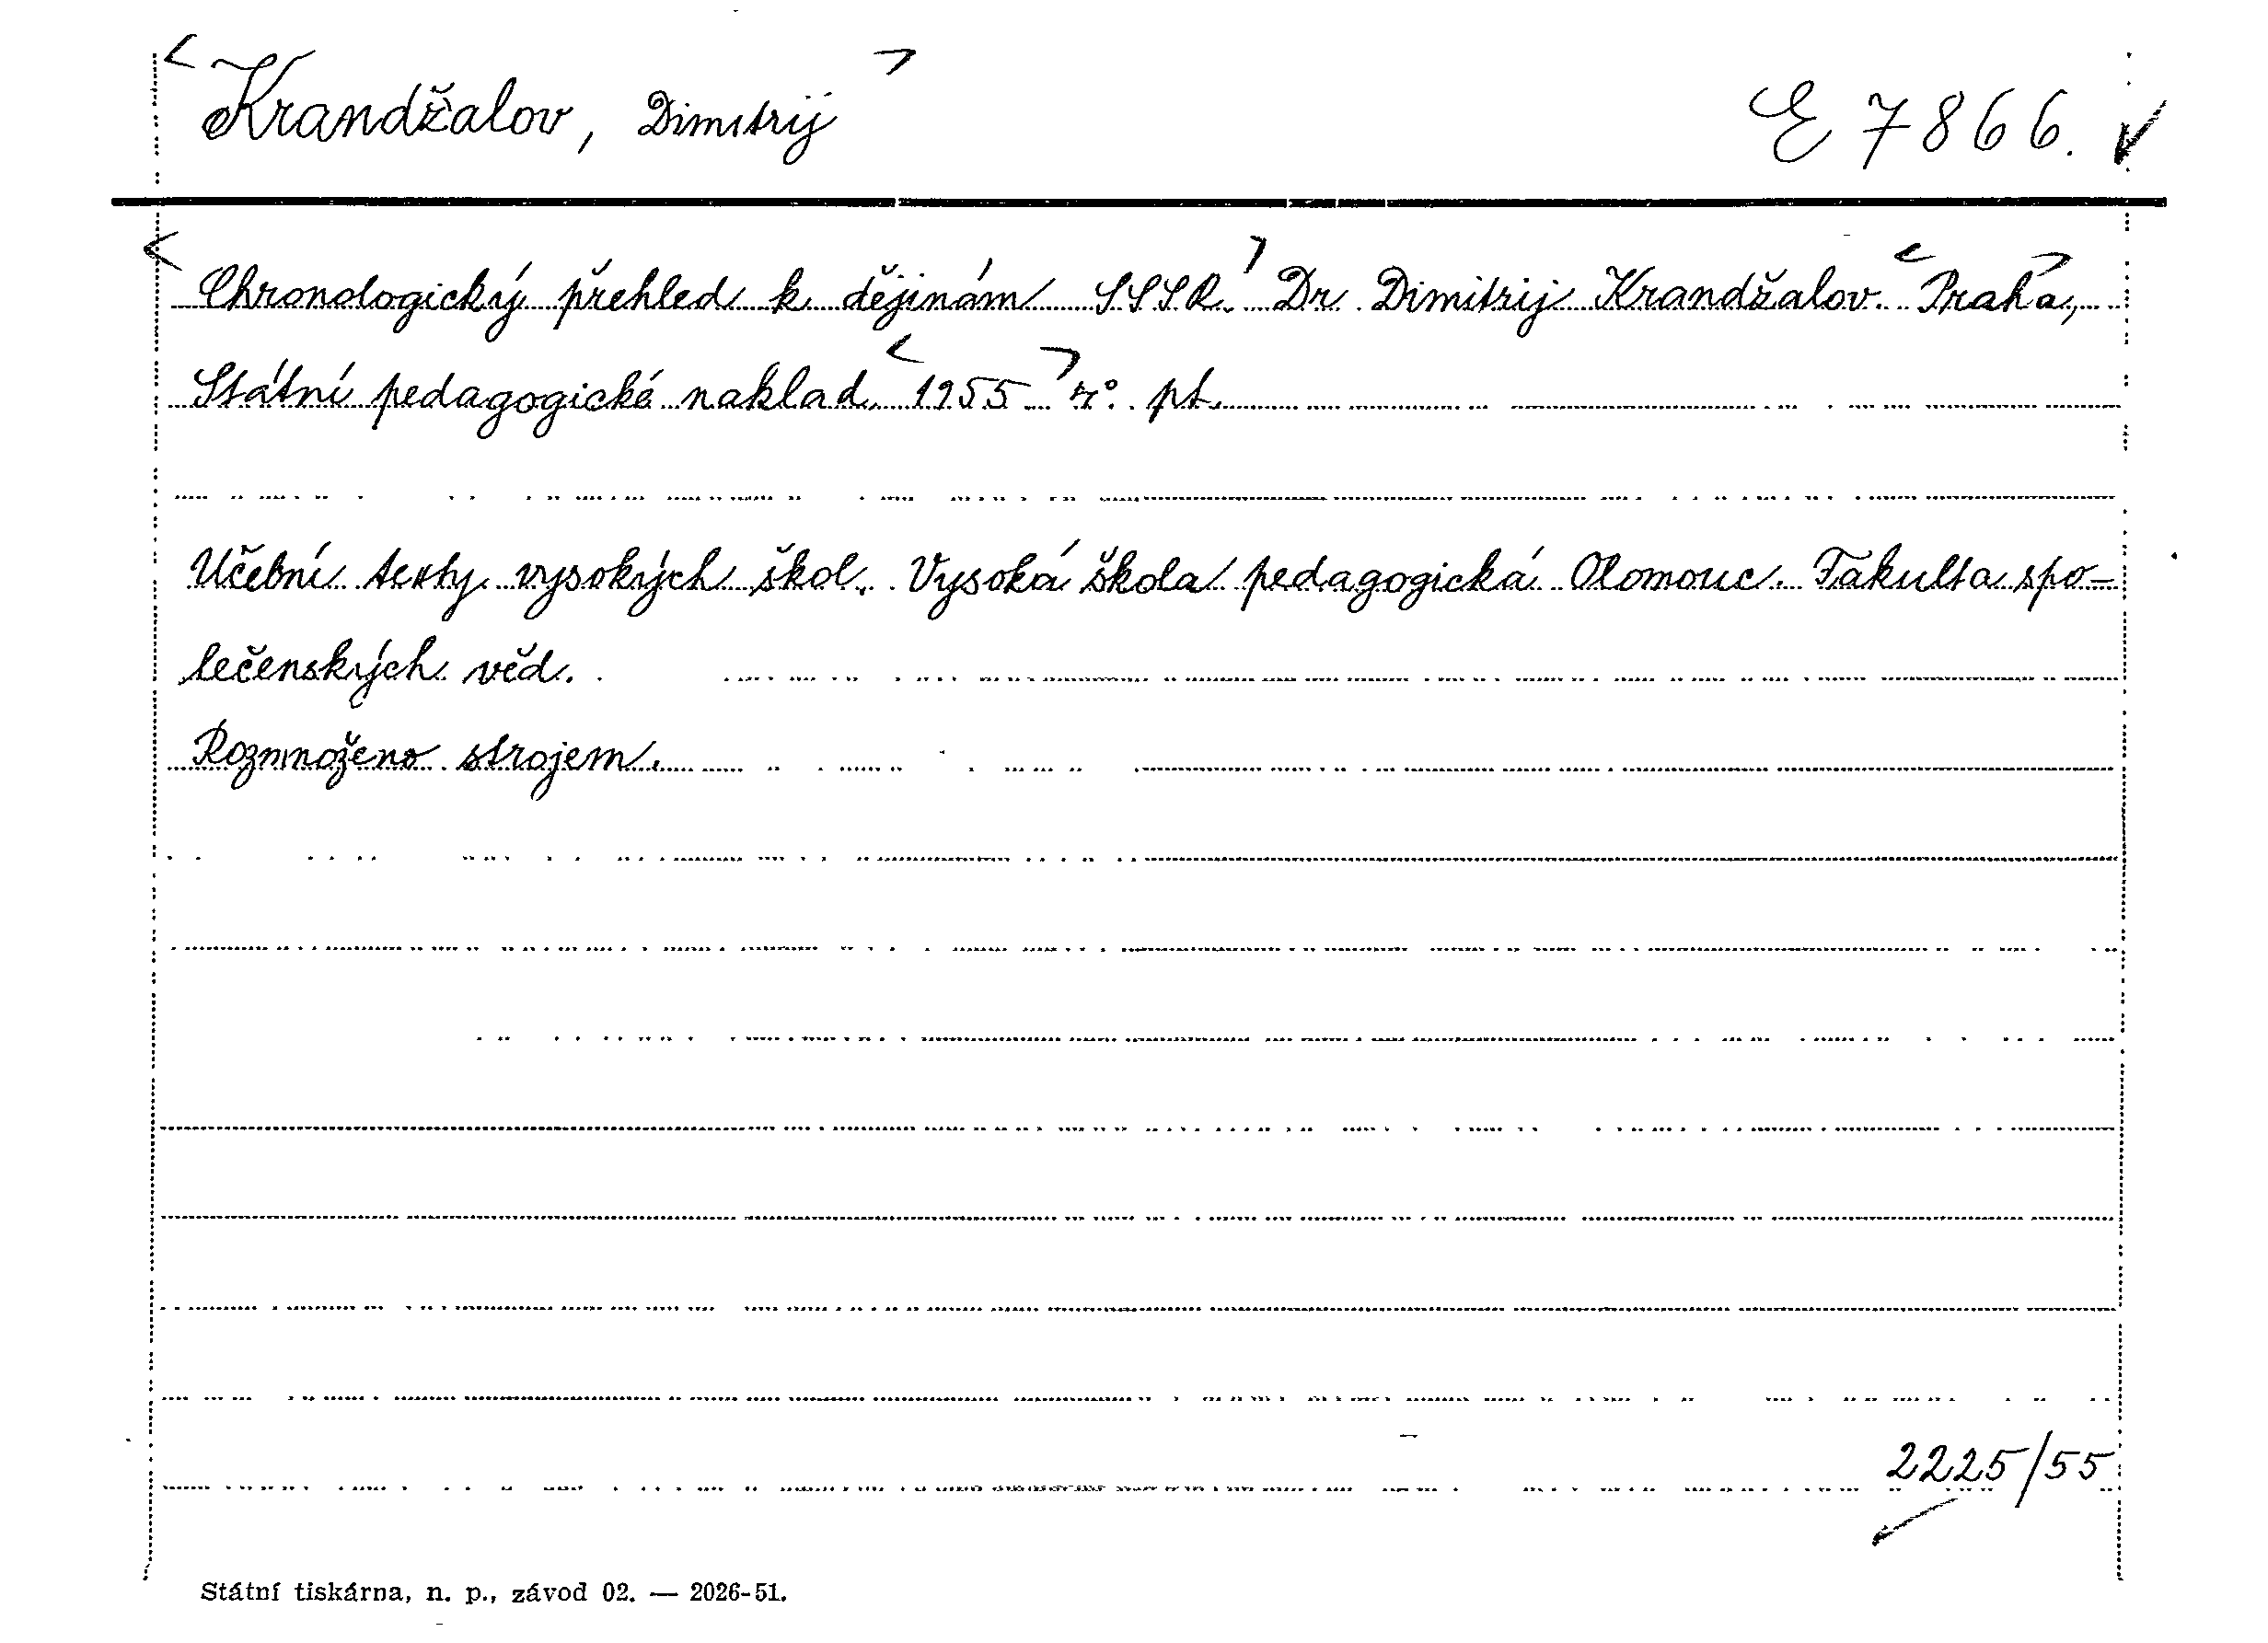 <Krandžalov, Dimitrij> E 7866. ✓
<Chronologický přehled k dějinám SSSR.> Dr Dimitrij Krandžalov. <Praha>,
Státní pedagogické naklad. <1955> 4°. pt.
Učební texty vysokých škol. Vysoká škola pedagogická Olomouc. Fakulta spo-
lečenských věd.
Rozmnoženo strojem.
2225/55
Státní tiskárna, n. p., závod 02. — 2026-51.